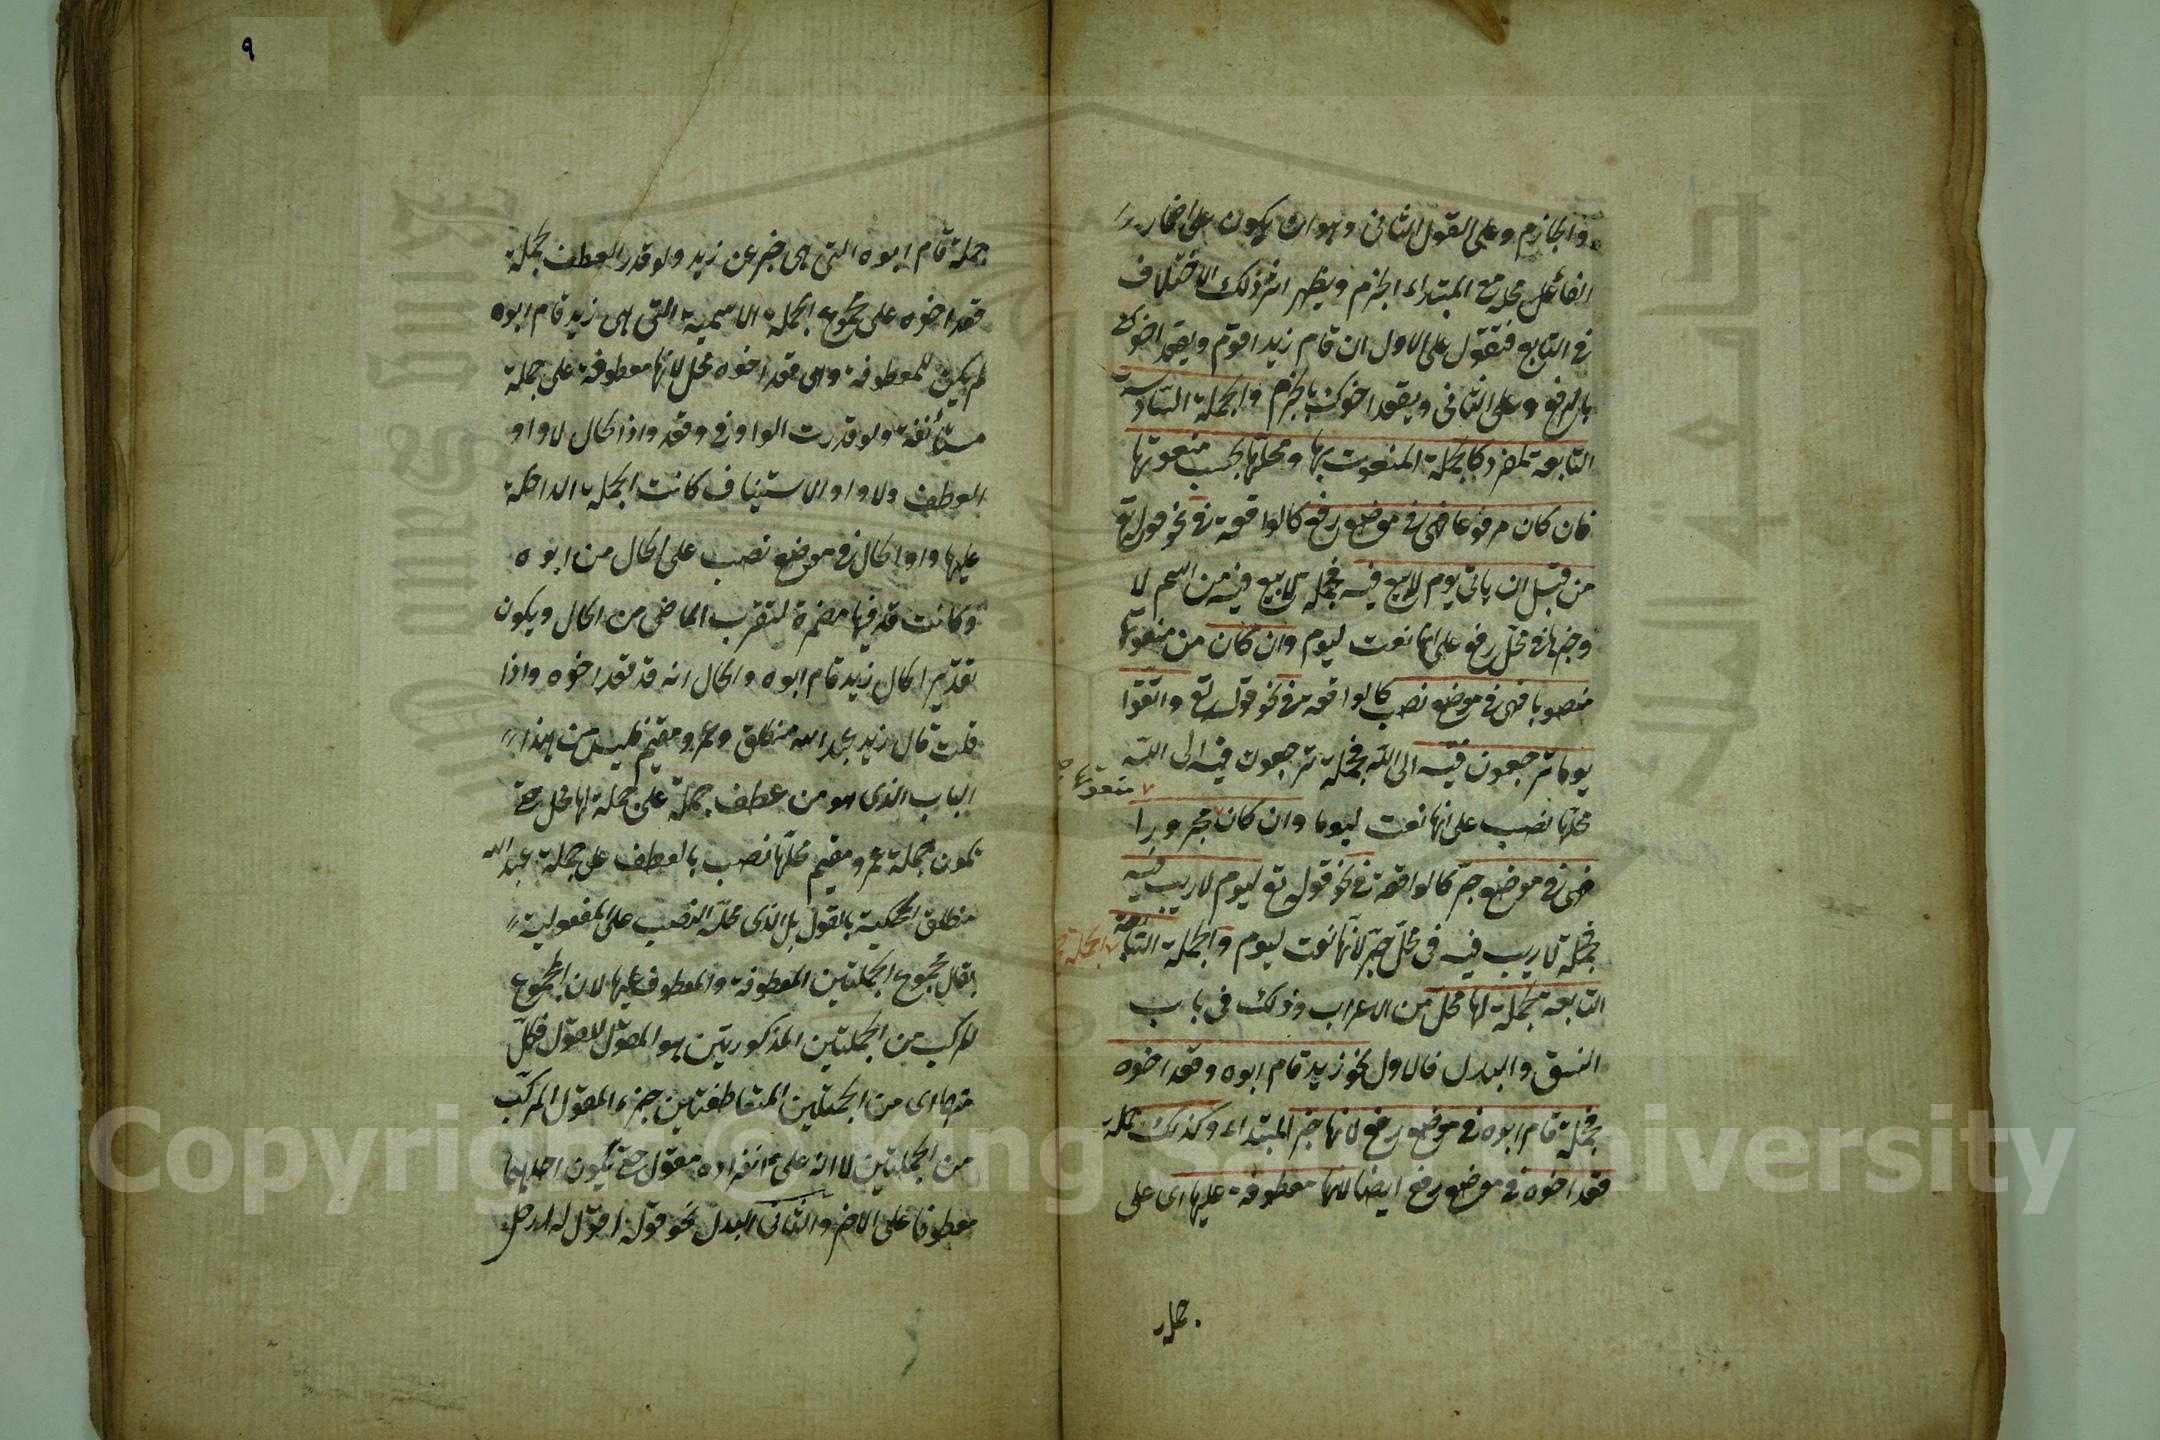 والجازم وعلى القول الثانى وهو ان يكون على اضمار
الفاء محل مع المبتداء الجزم ويظهر اثر ذلك الاختلاف
فى التابع فتقول على الاول ان قام زيد اقوم ويقعد اخوك
بالرفع وعلى الثانى ويقعد اخوك بالجزم والجملة السادسة
التابعة لمفرد كالجملة المنعوت بها ومحلها بحسب منعوتها
فان كان مرفوعا فهى فى موضع رفع كالواقعة فى نحو قوله تع
من قبل ان ياتى يوم لا بيع فيه فجملة لا بيع فيه من اسم لا
وخبرها فى محل رفع على انها نعت ليوم وان كان من منعوتها
منصوبا فهى فى موضع نصب كالواقعة فى نحو قوله تع واتقوا
يوما ترجعون فيه الى الله فجملة ترجعون فيه الى الله
محلها نصب على انها نعت ليوما وان كان مجرورا
منعوتها
فهى فى موضع جر كالواقعة فى نحو قوله تع ليوم لا ريب فيه
فجملة لا ريب فيه فى محل جر لانها نعت ليوم والجملة
الجملة
التابعة لجملة لها محل من الاعراب وذلك فى باب
النسق والبدل فالاول نحو زيد قام ابوه وقعد اخوه
فجملة قام ابوه فى موضع رفع لانها خبر المبتداء وكذلك جملة
قعد اخوه فى موضع رفع ايضا لانها معطوفة عليها اى على
جملة
٩
جملة قام ابوه التى هى خبر عن زيد ولو قدر العطف لجملة
قعد اخوه على مجموع الجملة الاسمية التى هى زيد قام ابوه
لم يكن للمعطوفة وهى قعد اخوه محل لانها معطوفة على جملة
مستأنفة ولو قدرت الواو فى وقعد واو الحال لا واو
العطف ولا واو الاستيناف كانت الجملة الداخلة
عليها واو الحال فى موضع نصب على الحال من ابوه
وكانت قد فيها مضمرة لتقرب الماضى من الحال ويكون
تقدير الحال زيد قام ابوه والحال انه قد قعد اخوه واذا
قلت قال زيد عبد الله منطلق وعمرو مقيم فليس من هذا
الباب الذى هو من عطف جملة على جملة لها محل حتى
تكون جملة عمرو مقيم محلها نصب بالعطف على جملة عبد الله
منطلق المحكية بالقول بل الذى محله النصب على المفعولية
لقال مجموع الجملتين المعطوفة والمعطوف عليها لان المجموع
المركب من الجملتين المذكورتين هو المقول للقول فكل
منهما اى من الجملتين المتعاطفتين جزء المقول المركب
من الجملتين لا انه على انفراده مقول حتى تكون احداهما
معطوفا على الاخر والثانى البدل نحو قوله اقول له ارحل